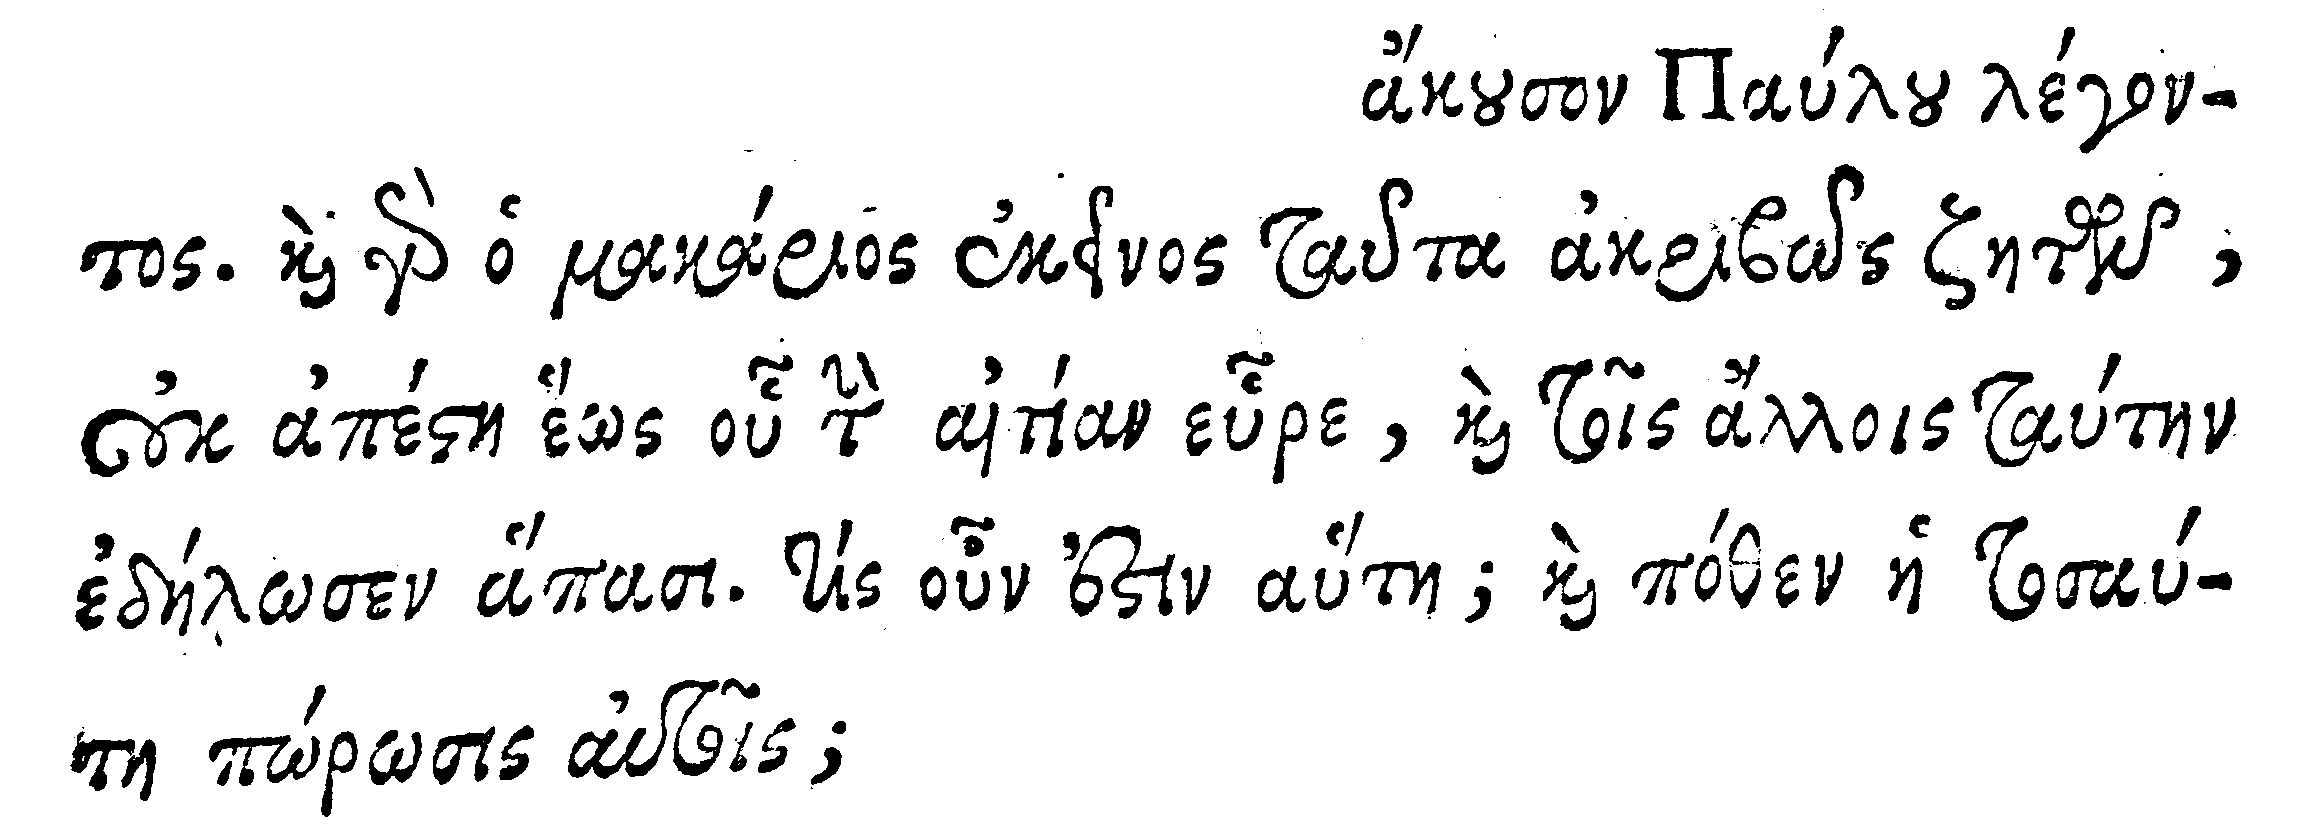 ἄκουσον Παύλου λέγον-
τος. καὶ γὰρ ὁ μακάριος ἐκεῖνος ταῦτα ἀκριβῶς ζητῶν,
οὐκ ἀπέστη ἕως οὗ τὴν αἰτίαν εὗρε, καὶ τοῖς ἄλλοις ταύτην
ἐδήλωσεν ἅπασι. τίς οὖν ἐστιν αὕτη; καὶ πόθεν ἡ τοσαύ-
τη πώρωσις αὐτοῖς;